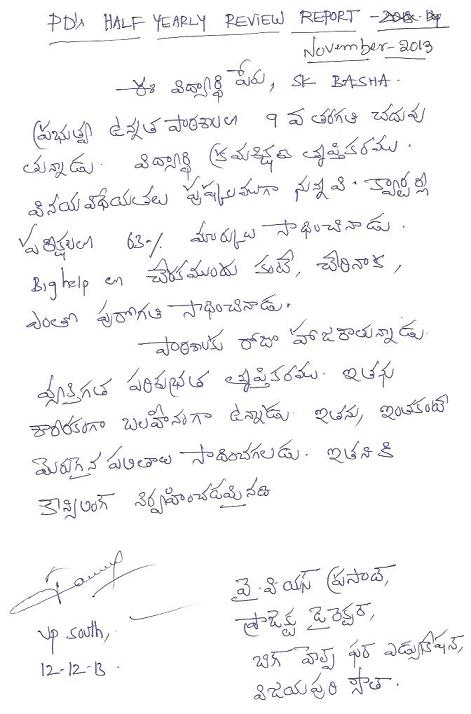 PD's HALF YEARLY REVIEW REPORT -
November-2013
ఈ విద్యార్థి పేరు, SK BASHA.
ప్రభుత్వ ఉన్నత పాఠశాల 9 వ తరగతి చదువు
తున్నాడు. విద్యార్థి క్రమశిక్షణ తృప్తికరము.
వినయవిధేయతలు పుష్కలముగా నున్నవి. క్వార్టర్లి
పరీక్షలలో 63% మార్కులు సాధించినాడు.
Bighelp లో చేరకముందు కంటే, చేరినాక,
ఎంతో పురోగతి సాధించినాడు.
పాఠశాలకు రోజూ హాజరౌతున్నాడు.
వ్యక్తిగత పరిశుభ్రత తృప్తికరము. ఇతను
శారీరకంగా బలహీనంగా ఉన్నాడు. ఇతను, ఇంతకంటే
మెరుగైన ఫలితాలు సాధించగలడు. ఇతనికి
కౌన్సిలింగ్ నిర్వహించడమైనది
వై.వి.యస్ ప్రసాద్,
ప్రాజెక్టు డైరెక్టర్,
బిగ్ హెల్ప్ ఫర్ ఎడ్యుకేషన్,
విజయపురి సౌత్.
Vp South,
12-12-13.